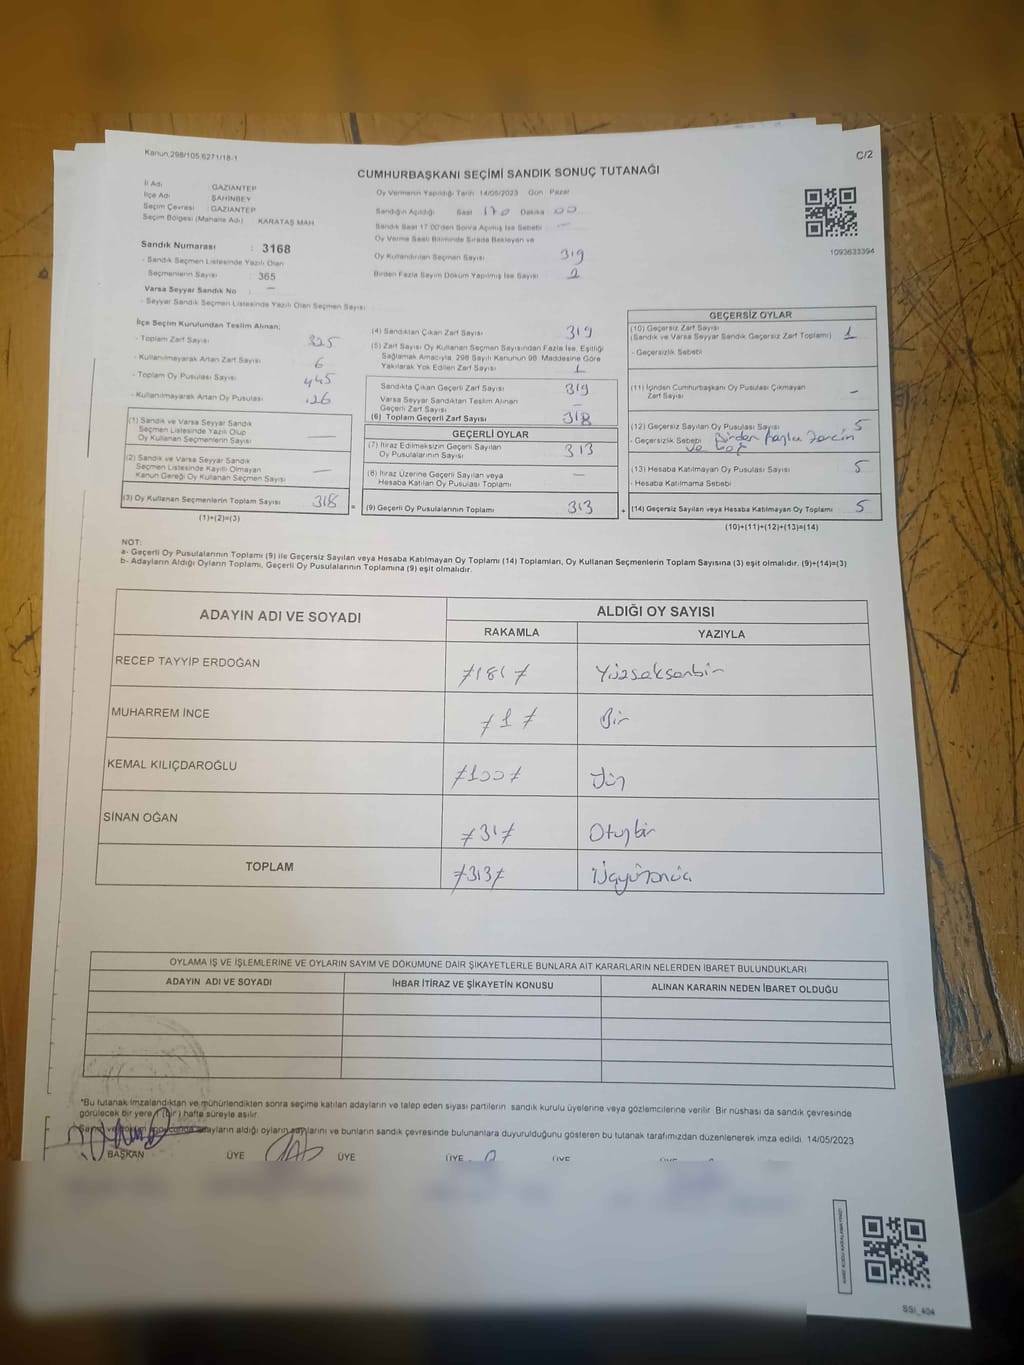 Kanun 298/105;6271/18-1
C/2
CUMHURBAŞKANI SEÇİMİ SANDIK SONUÇ TUTANAĞI
İl Adı : GAZİANTEP
İlçe Adı : ŞAHİNBEY
Seçim Çevresi : GAZİANTEP
Seçim Bölgesi (Mahalle Adı) KARATAŞ MAH.
Sandık Numarası : 3168
- Sandık Seçmen Listesinde Yazılı Olan
Seçmenlerin Sayısı : 365
Varsa Seyyar Sandık No : —
- Seyyar Sandık Seçmen Listesinde Yazılı Olan Seçmen Sayısı :
Oy Vermenin Yapıldığı Tarih 14/05/2023 Gün Pazar
Sandığın Açıldığı Saat 17 Dakika 00
Sandık Saat 17:00'den Sonra Açılmış İse Sebebi —
Oy Verme Saati Bitiminde Sırada Bekleyen ve
Oy Kullandırılan Seçmen Sayısı 319
Birden Fazla Sayım Döküm Yapılmış İse Sayısı 2
1093633394
İlçe Seçim Kurulundan Teslim Alınan;
- Toplam Zarf Sayısı 325
- Kullanılmayarak Artan Zarf Sayısı 6
- Toplam Oy Pusulası Sayısı 445
- Kullanılmayarak Artan Oy Pusulası 126
(1) Sandık ve Varsa Seyyar Sandık
Seçmen Listesinde Yazılı Olup
Oy Kullanan Seçmenlerin Sayısı —
(2) Sandık ve Varsa Seyyar Sandık
Seçmen Listesinde Kayıtlı Olmayan
Kanun Gereği Oy Kullanan Seçmen Sayısı —
(3) Oy Kullanan Seçmenlerin Toplam Sayısı 318 =
(1)+(2)=(3)
(4) Sandıktan Çıkan Zarf Sayısı 319
(5) Zarf Sayısı Oy Kullanan Seçmen Sayısından Fazla İse, Eşitliği
Sağlamak Amacıyla, 298 Sayılı Kanunun 98. Maddesine Göre
Yakılarak Yok Edilen Zarf Sayısı 1
Sandıkta Çıkan Geçerli Zarf Sayısı 319
Varsa Seyyar Sandıktan Teslim Alınan
Geçerli Zarf Sayısı —
(6) Toplam Geçerli Zarf Sayısı 318
GEÇERLİ OYLAR
(7) İtiraz Edilmeksizin Geçerli Sayılan
Oy Pusulalarının Sayısı 313
(8) İtiraz Üzerine Geçerli Sayılan veya
Hesaba Katılan Oy Pusulası Toplamı —
(9) Geçerli Oy Pusulalarının Toplamı 313 +
GEÇERSİZ OYLAR
(10) Geçersiz Zarf Sayısı
(Sandık ve Varsa Seyyar Sandık Geçersiz Zarf Toplamı) 1
- Geçersizlik Sebebi
(11) İçinden Cumhurbaşkanı Oy Pusulası Çıkmayan
Zarf Sayısı —
(12) Geçersiz Sayılan Oy Pusulası Sayısı 5
- Geçersizlik Sebebi Birden fazla tercih
ve boş
(13) Hesaba Katılmayan Oy Pusulası Sayısı 5
- Hesaba Katılmama Sebebi :
(14) Geçersiz Sayılan veya Hesaba Katılmayan Oy Toplamı 5
(10)+(11)+(12)+(13)=(14)
NOT:
a- Geçerli Oy Pusulalarının Toplamı (9) ile Geçersiz Sayılan veya Hesaba Katılmayan Oy Toplamı (14) Toplamları, Oy Kullanan Seçmenlerin Toplam Sayısına (3) eşit olmalıdır. (9)+(14)=(3)
b- Adayların Aldığı Oyların Toplamı, Geçerli Oy Pusulalarının Toplamına (9) eşit olmalıdır.
ADAYIN ADI VE SOYADI
ALDIĞI OY SAYISI
RAKAMLA YAZIYLA
RECEP TAYYİP ERDOĞAN ≠181≠ Yüzseksenbir
MUHARREM İNCE ≠1≠ Bir
KEMAL KILIÇDAROĞLU ≠100≠ Yüz
SİNAN OĞAN ≠31≠ Otuzbir
TOPLAM ≠313≠
OYLAMA İŞ VE İŞLEMLERİNE VE OYLARIN SAYIM VE DÖKÜMÜNE DAİR ŞİKAYETLERLE BUNLARA AİT KARARLARIN NELERDEN İBARET BULUNDUKLARI
ADAYIN ADI VE SOYADI İHBAR İTİRAZ VE ŞİKAYETİN KONUSU ALINAN KARARIN NEDEN İBARET OLDUĞU
*Bu tutanak imzalandıktan ve mühürlendikten sonra seçime katılan adayların ve talep eden siyasi partilerin sandık kurulu üyelerine veya gözlemcilerine verilir. Bir nüshası da sandık çevresinde
görülecek bir yere (bir) hafta süreyle asılır.
adayların aldığı oyların sayılarını ve bunların sandık çevresinde bulunanlara duyurulduğunu gösteren bu tutanak tarafımızdan düzenlenerek imza edildi. 14/05/2023
BAŞKAN ÜYE ÜYE ÜYE ÜYE
SSI_404